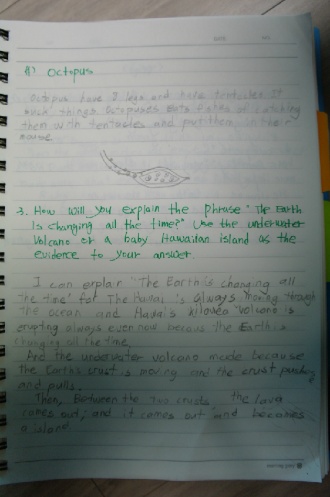 #1 Octopus
Octopus have 8 legs and have tentacles. It
suck things. Octopuses eats fishes at catching
them with tentacles and put them in their
mouse.
3. How will you explain the phrase "The Earth
Is changing all the time?" Use the underwater
Volcano or a baby Hawaiian island as the
evidence to your answer.
I can explain "The Earth is changing all
the time" for The Hawaii is always moving through
the ocean and Hawaii's kilauea volcano is
erupting always even now becaus the Earth is
changing all the time.
And the underwater volcano made because
the Earths crust is moving and the crust pushes
and pulls.
Then, Between the two crusts the lava
comes out, and it comes out and becomes
a island.